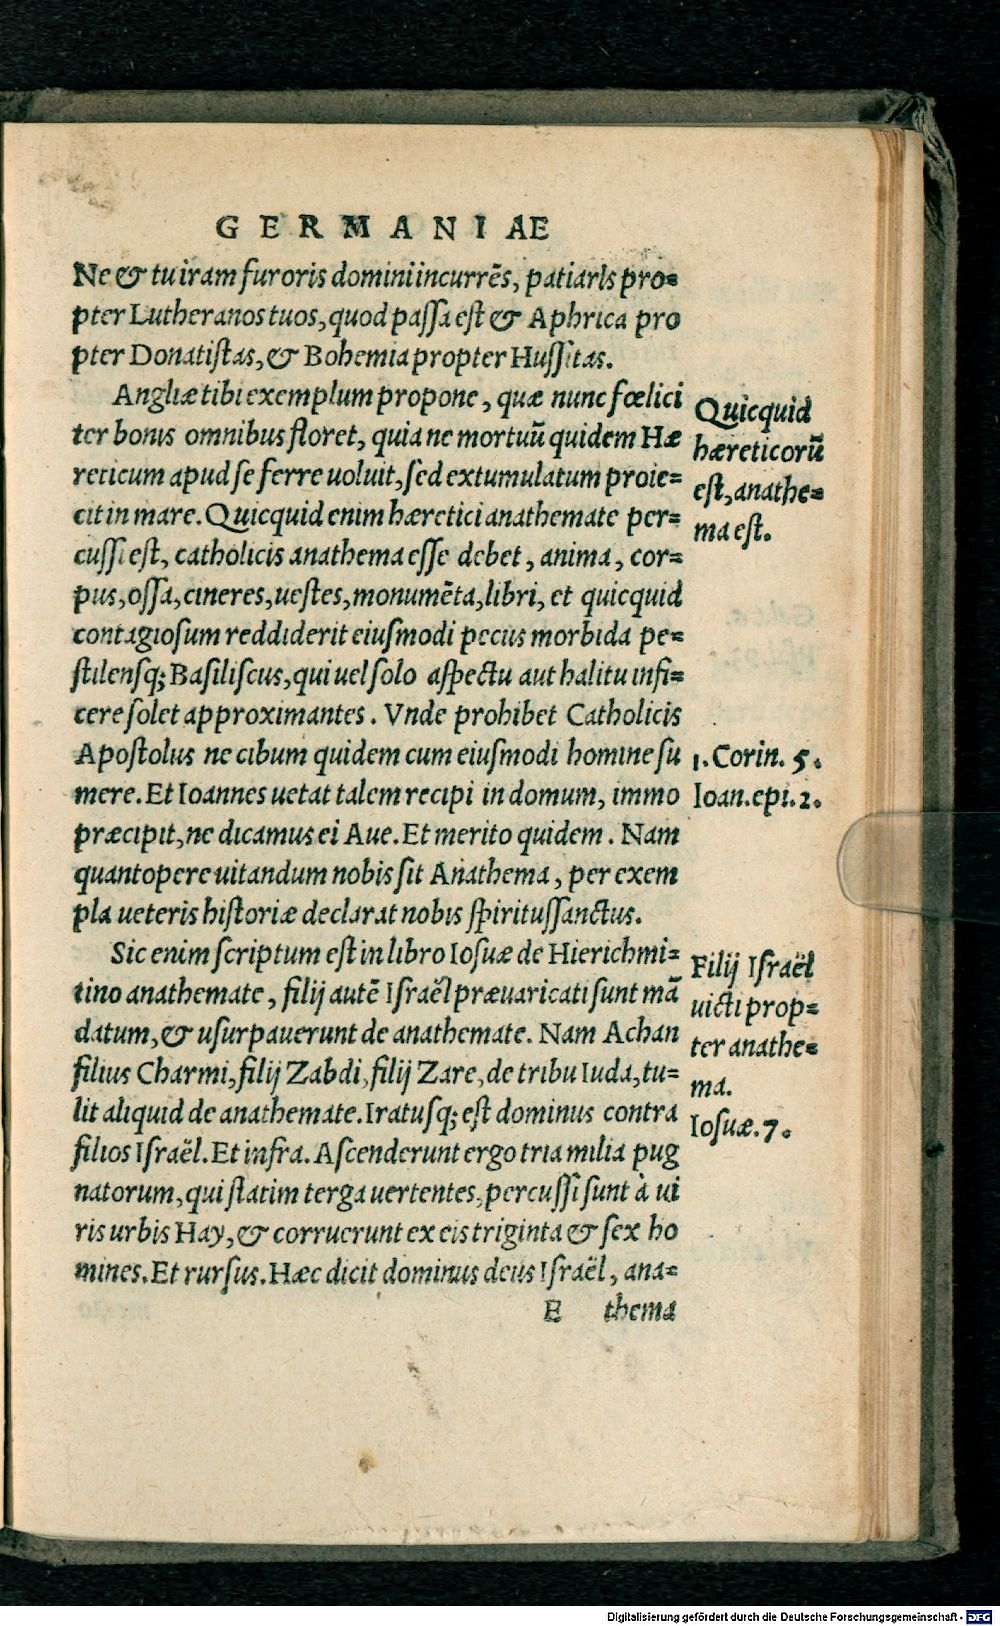 GERMANIAE
Ne & tu iram furoris domini incurrẽs, patiaris pro=
pter Lutheranos tuos, quod passa est & Aphrica pro
pter Donatistas, & Bohemia propter Hussitas.
Angliæ tibi exemplum propone, quæ nunc fœlici
ter bonis omnibus floret, quia ne mortuũ quidem Hæ
reticum apud se ferre uoluit, sed extumulatum proie=
cit in mare. Quicquid enim hæretici anathemate per=
cussi est, catholicis anathema esse debet, anima, cor=
pus, ossa, cineres, uestes, monumẽta, libri, et quicquid
contagiosum reddiderit eiusmodi pecus morbida pe=
stilensq; Basiliscus, qui uel solo aspectu aut halitu infi=
cere solet approximantes. Vnde prohibet Catholicis
Apostolus ne cibum quidem cum eiusmodi homine su
mere. Et Ioannes uetat talem recipi in domum, immo
præcipit, ne dicamus ei Aue. Et merito quidem. Nam
quantopere uitandum nobis sit Anathema, per exem
pla ueteris historiæ declarat nobis spiritussanctus.
Sic enim scriptum est in libro Iosuæ de Hierichmi=
tino anathemate, filij autẽ Israël præuaricati sunt mã
datum, & usurpauerunt de anathemate. Nam Achan
filius Charmi, filij Zabdi, filij Zare, de tribu Iuda, tu=
lit aliquid de anathemate. Iratusq; est dominus contra
filios Israël. Et infra. Ascenderunt ergo tria milia pug
natorum, qui statim terga uertentes, percussi sunt à ui
ris urbis Hay, & corruerunt ex eis triginta & sex ho
mines. Et rursus. Hæc dicit dominus deus Israël, ana=
E thema
Quicquid
hæreticorũ
est, anathe=
ma est.
1. Corin. 5.
Ioan. epi. 2.
Filij Israël
uicti prop=
ter anathe=
ma.
Iosuæ. 7.
Digitalisierung gefördert durch die Deutsche Forschungsgemeinschaft - DFG